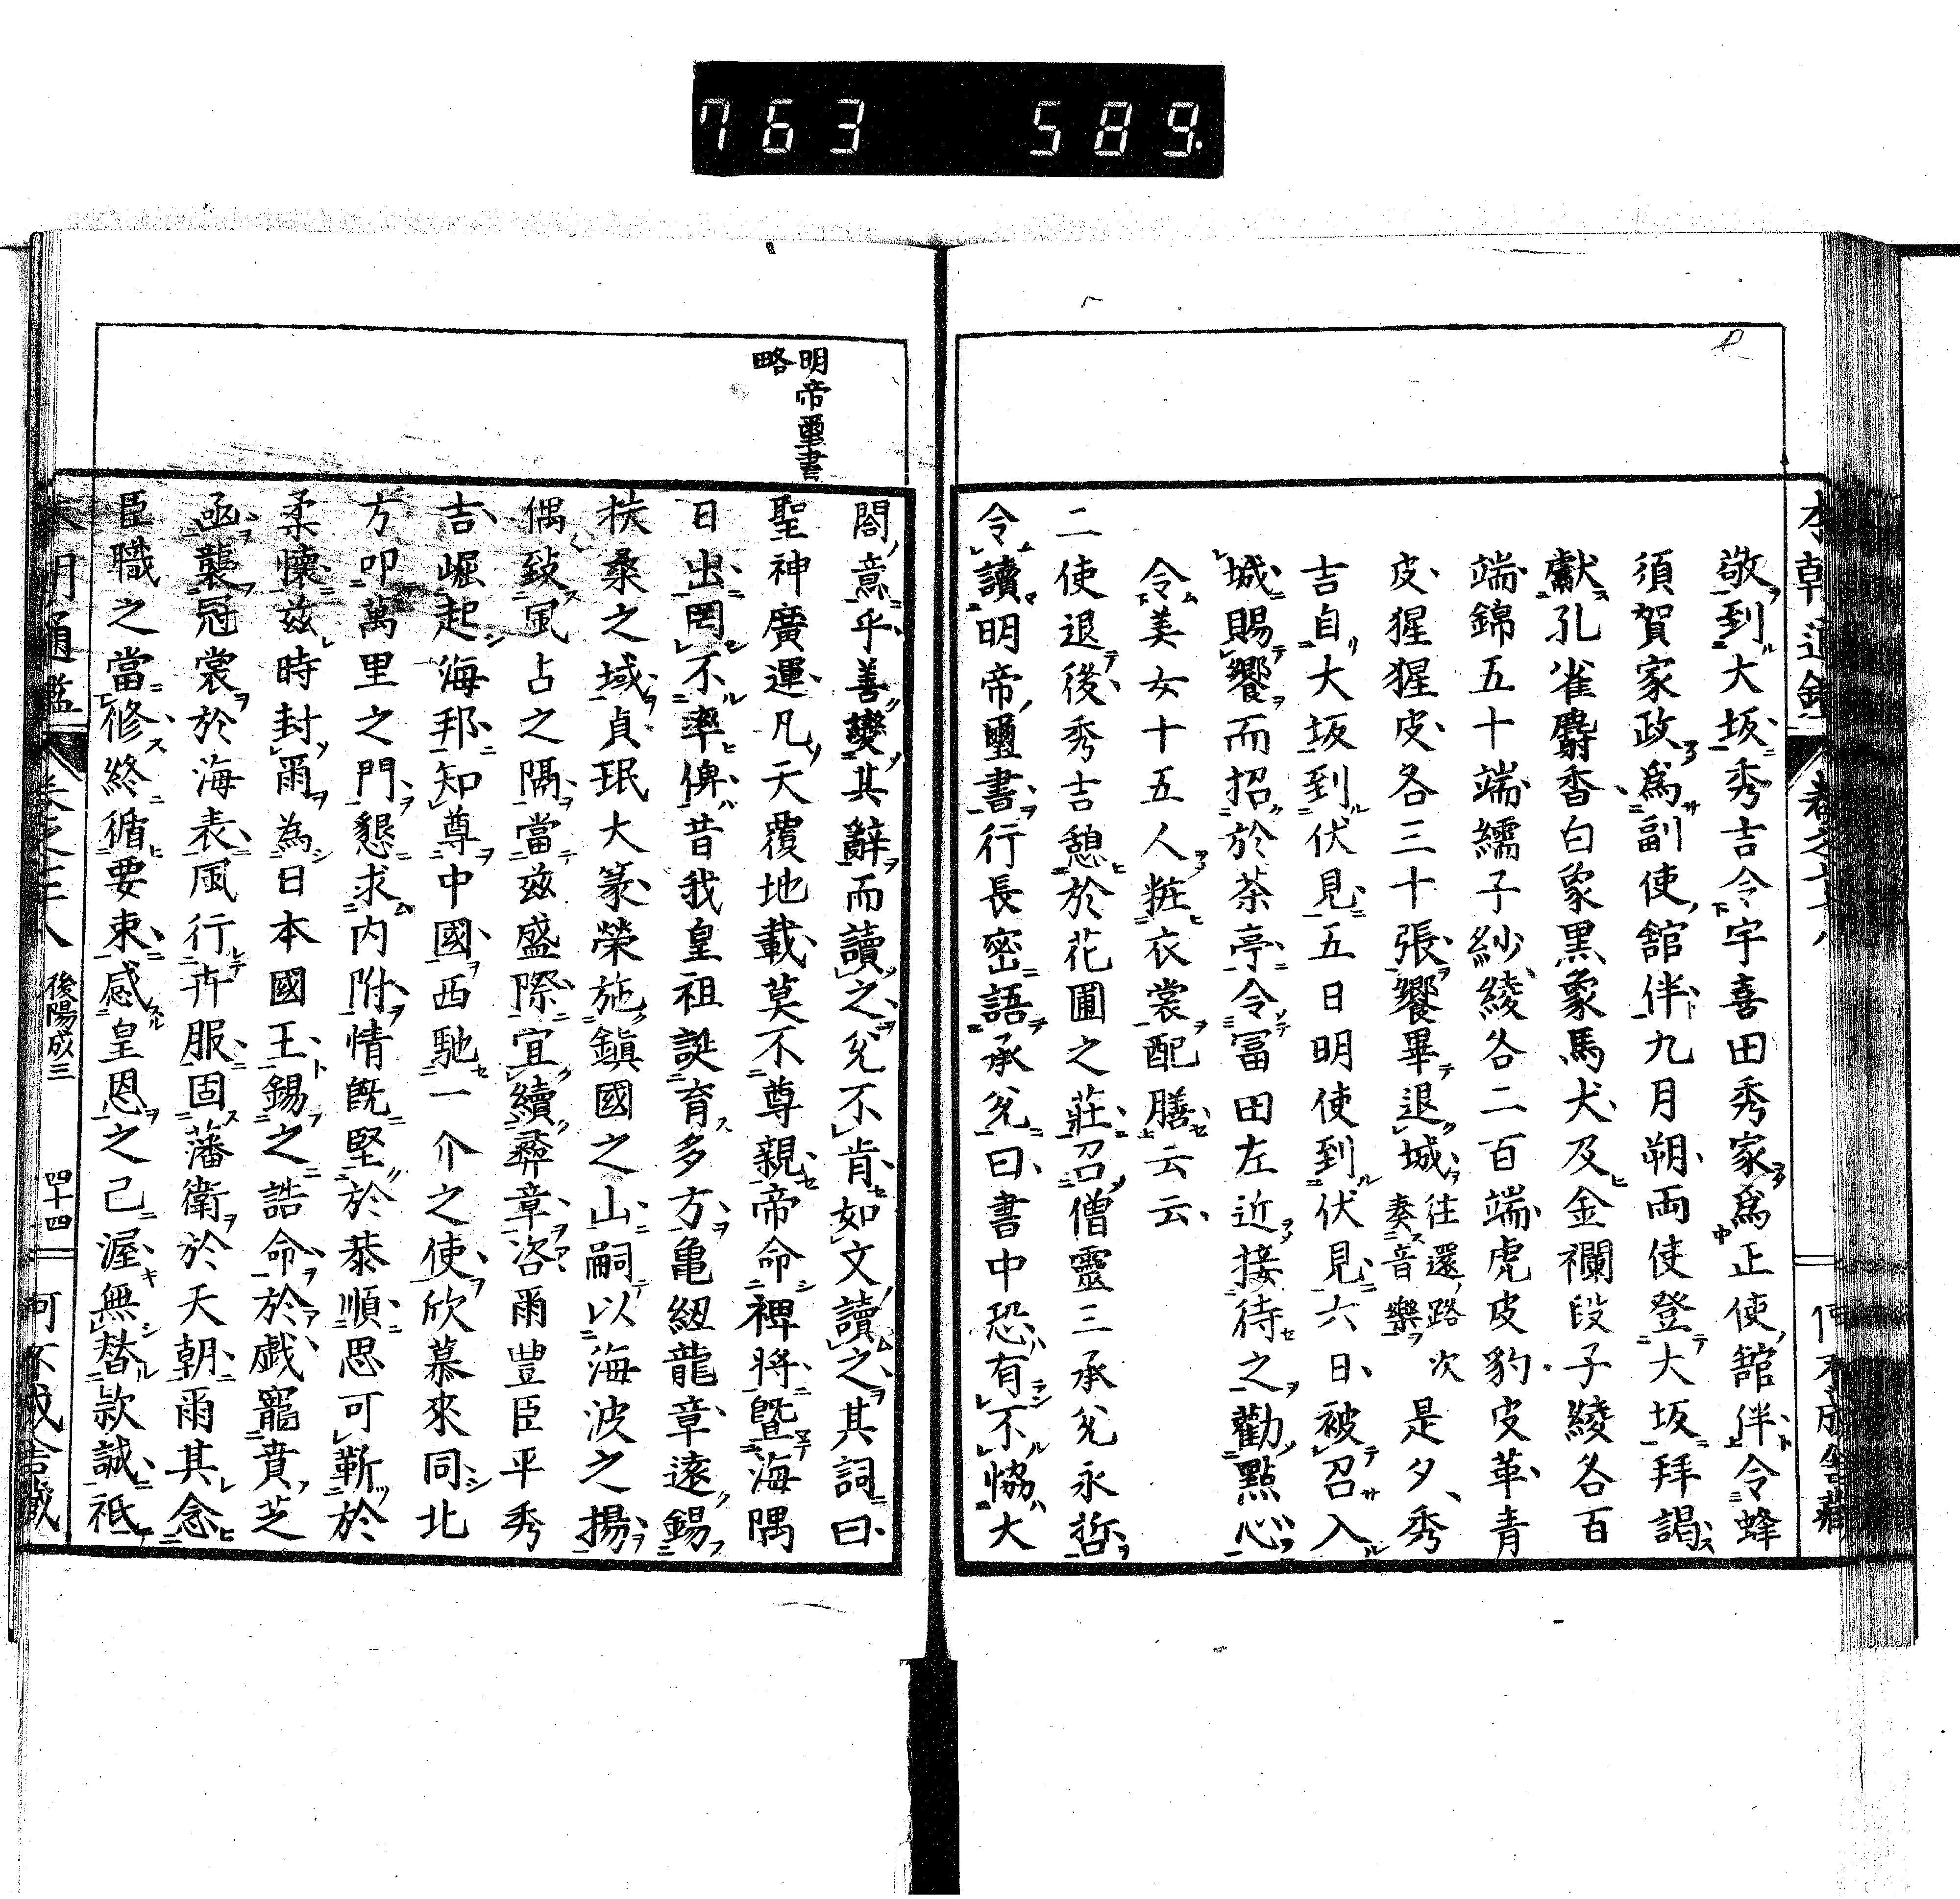 763 589.
敬到大坂秀吉令宇喜田秀家爲正使舘伴令蜂
須賀家政爲副使舘伴九月朔両使登大坂拜謁
獻孔雀麝香白象黒象馬犬及金襴段子綾各百
端錦五十端繻子紗綾各二百端虎皮豹皮革青
皮猩猩皮各三十張饗畢退城往還路次奏音樂是夕秀
吉自大坂到伏見五日明使到伏見六日被召入
城賜饗而招於茶亭令冨田左近接待之勸點心
令美女十五人粧衣裳配膳云云
二使退後秀吉憩於花圃之莊召僧靈三承兊永哲
令讀明帝璽書行長密語承兊曰書中恐有不協大
明帝璽書
略
閤意乎善變其辭而讀之兊不肯如文讀之其詞曰
聖神廣運凡天覆地載莫不尊親帝命裨將曁海隅
日出罔不率俾昔我皇祖誕育多方亀紐龍章遠錫
扶桑之域貞珉大篆榮施鎭國之山嗣以海波之揚
偶致風占之隔當茲盛際宜續彞章咨爾豐臣平秀
吉崛起海邦知尊中國西馳一介之使欣慕來同北
方叩萬里之門懇求内附情既堅於恭順思可靳於
柔懷茲時封爾為日本國王錫之誥命於戯寵賁芝
函襲冠裳於海表風行卉服固藩衛於天朝爾其念
臣職之當修終循要束感皇恩之已渥無替款誠祗
本朝通鑑 卷之 後陽成三 四十四